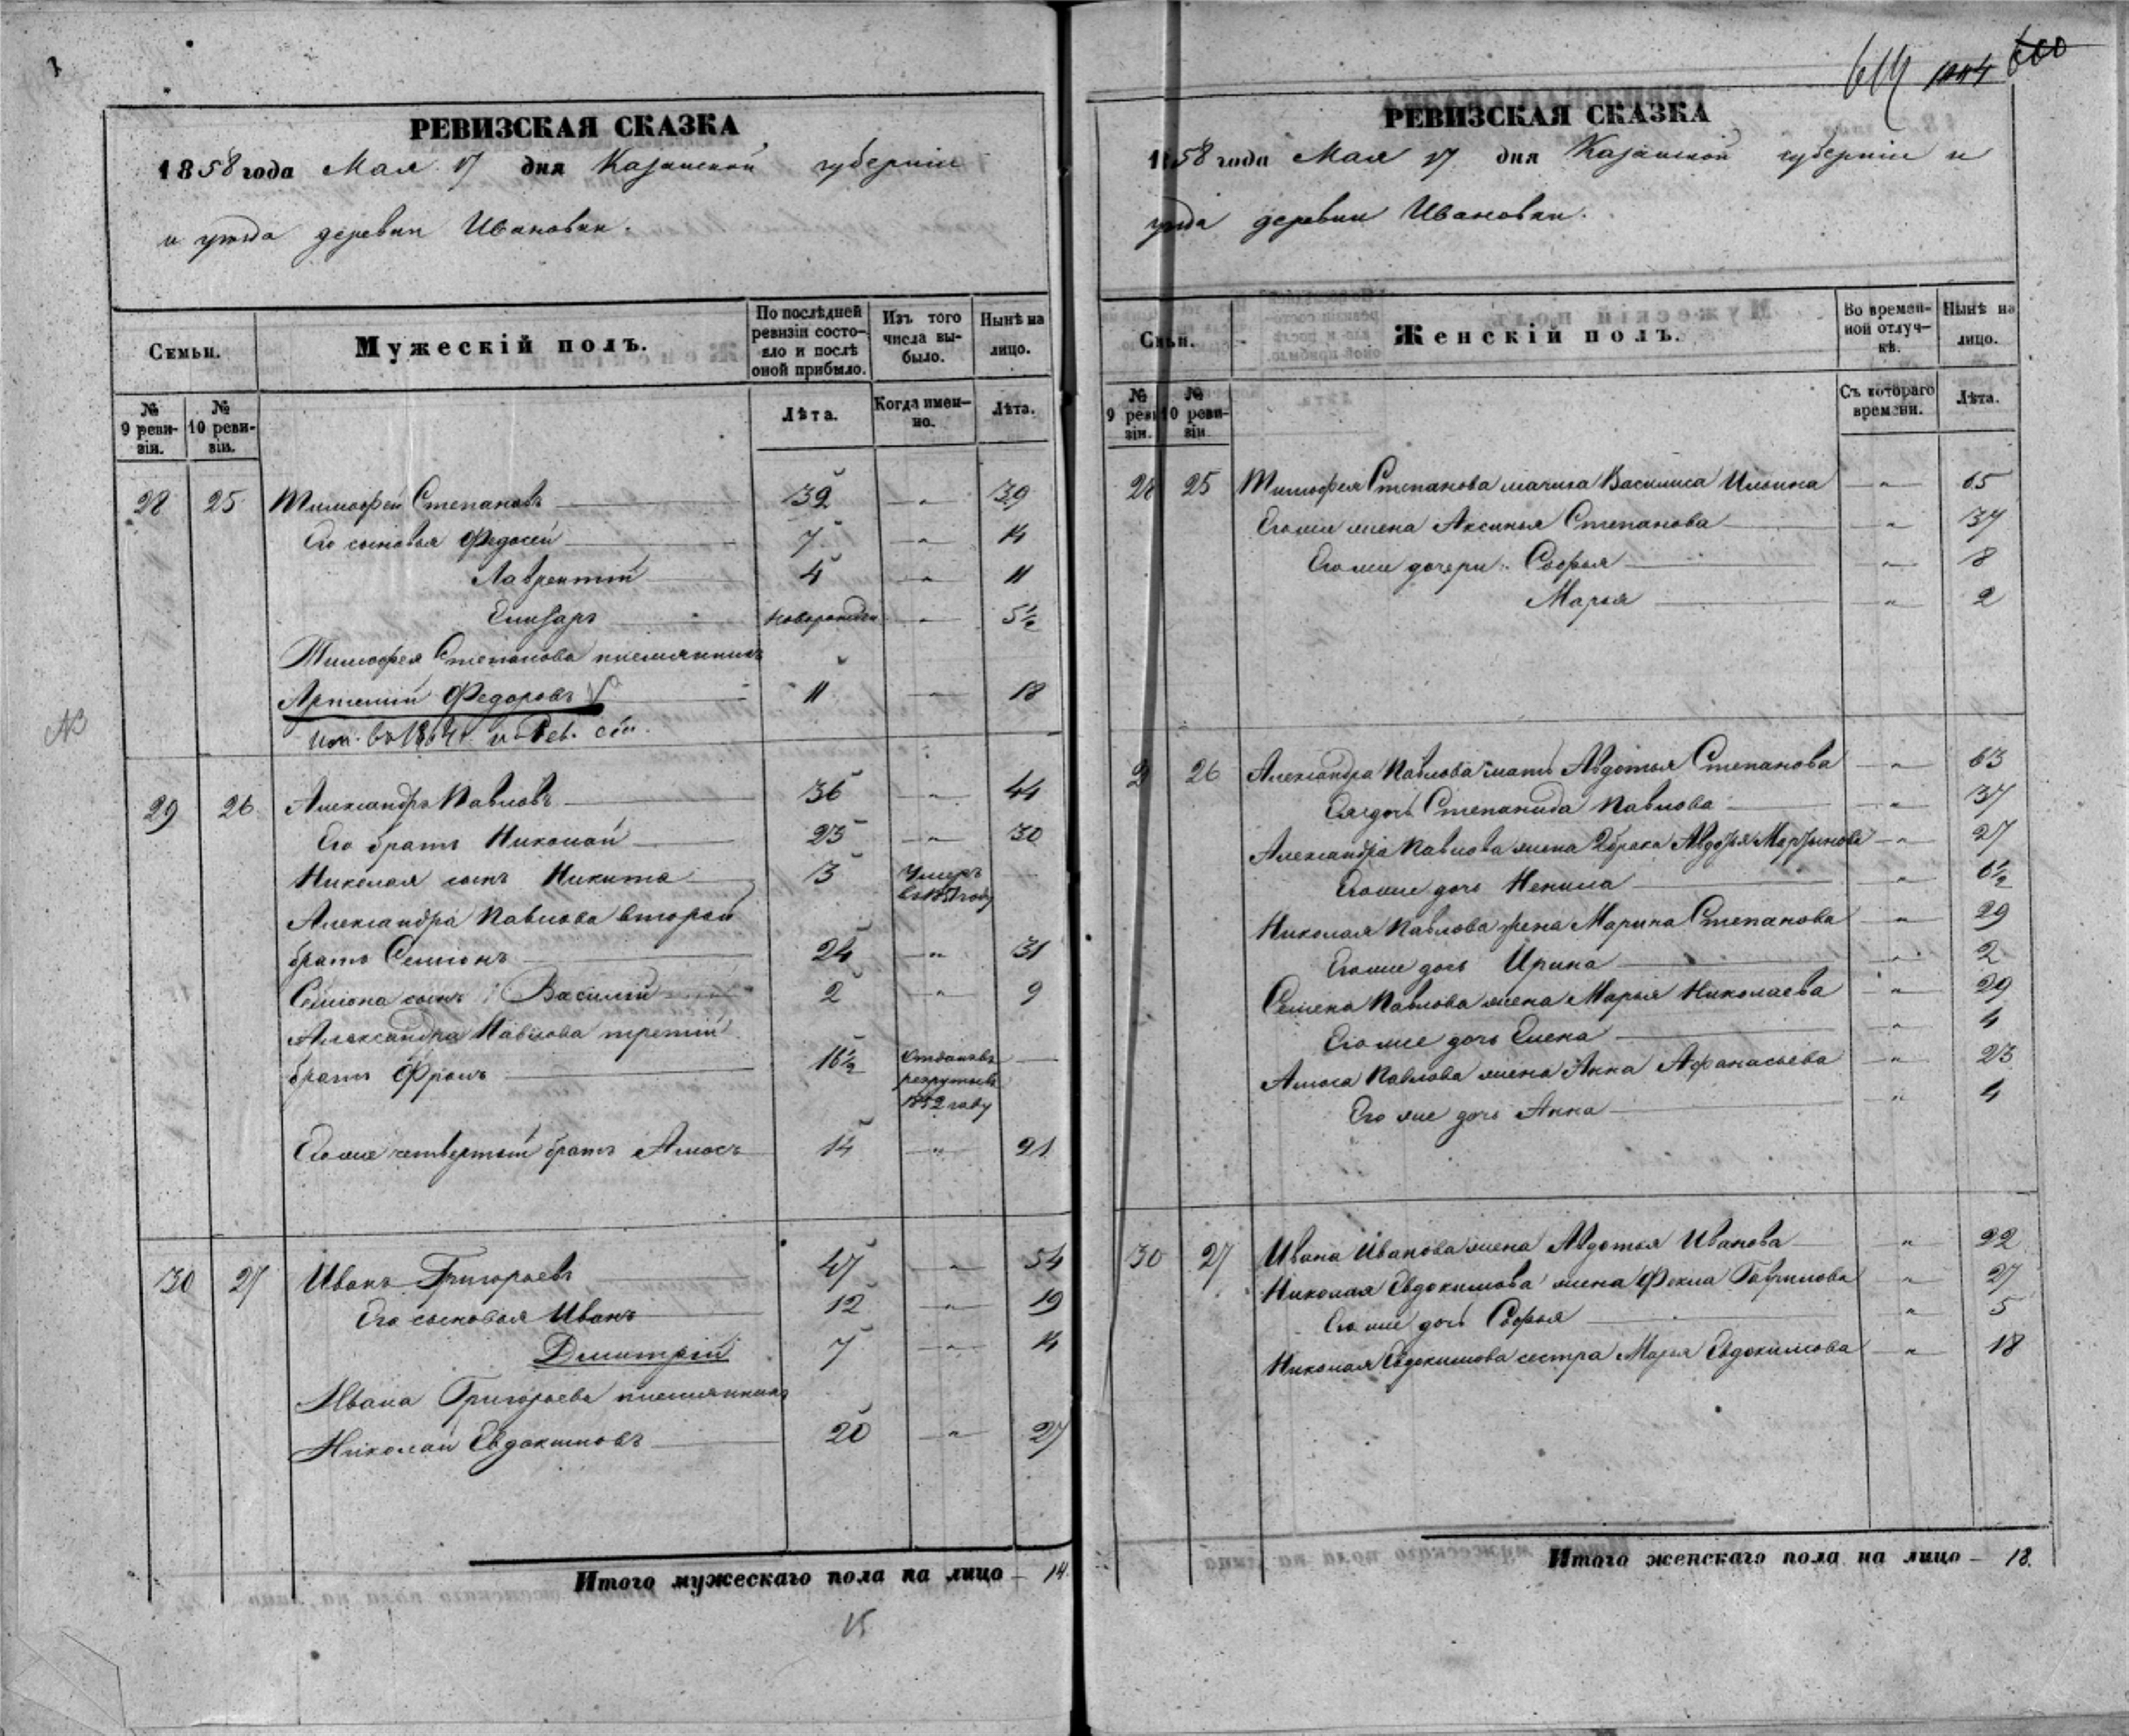 614 1044 600
РЕВИЗСКАЯ СКАЗКА
1858 года Мая 17 дня Казанской губерніи
и уѣзда деревни Ивановки.
Семьи.
Мужескій полъ.
По послѣдней ревизіи состояло и послѣ оной прибыло.
Изъ того числа выбыло.
Нынѣ на лицо.
№ 9 ревизіи.
№ 10 ревизіи.
Лѣта.
Когда именно.
Лѣта.
28 25 Тимофей Степановъ 32 " 39
Его сыновья Федосей 7 " 14
Лаврентій 4 " 11
Елизаръ новорожден " 5½
Тимофея Степанова племянникъ
Артемий Федоровъ 11 " 18
NB
29 26 Александръ Павловъ 36 " 44
Его братъ Николай 23 " 30
Николая сынъ Никита 3 Умеръ в 1851 году
Александра Павлова второй
братъ Семіонъ 24 " 31
Семіона сынъ Василій 2 " 9
Александра Павлова третій
братъ Фролъ 16½ Отданъ въ рекруты въ 1852 году
Его же четвертый братъ Амосъ 14 " 21
30 27 Иванъ Григорьевъ 47 " 54
Его сыновья Иванъ 12 " 19
Дмитрій 7 " 14
Ивана Григорьева племянникъ
Николай Евдокимовъ 20 " 27
Итого мужескаго пола на лицо – 14.
15
РЕВИЗСКАЯ СКАЗКА
1858 года Мая 17 дня Казанской губерніи и
уѣзда деревни Ивановки.
Семьи.
Женскій полъ.
Во временной отлучкѣ.
Нынѣ на лицо.
№ 9 ревизіи.
№ 10 ревизіи.
Съ котораго времени.
Лѣта.
28 25 Тимофея Степанова мачиха Василиса Ильина " 65
Его же жена Аксинья Степанова " 37
Его же дочери: Софья " 8
Марья " 2
29 26 Александра Павлова мать Авдотья Степанова " 63
Ея дочь Степанида Павлова " 37
Александра Павлова жена 2 брака Авдотья Мартынова " 27
Его же дочь Ненила " 6½
Николая Павлова жена Марина Степанова " 29
Его же дочь Ирина " 2
Семена Павлова жена Марья Николаева " 29
Его же дочь Елена " 4
Амоса Павлова жена Анна Афанасьева " 23
Его же дочь Анна " 4
30 27 Ивана Иванова жена Авдотья Иванова " 22
Николая Евдокимова жена Фекла Гаврилова " 27
Его же дочь Софья " 5
Николая Евдокимова сестра Марья Евдокимова " 18
Итого женскаго пола на лицо – 18.